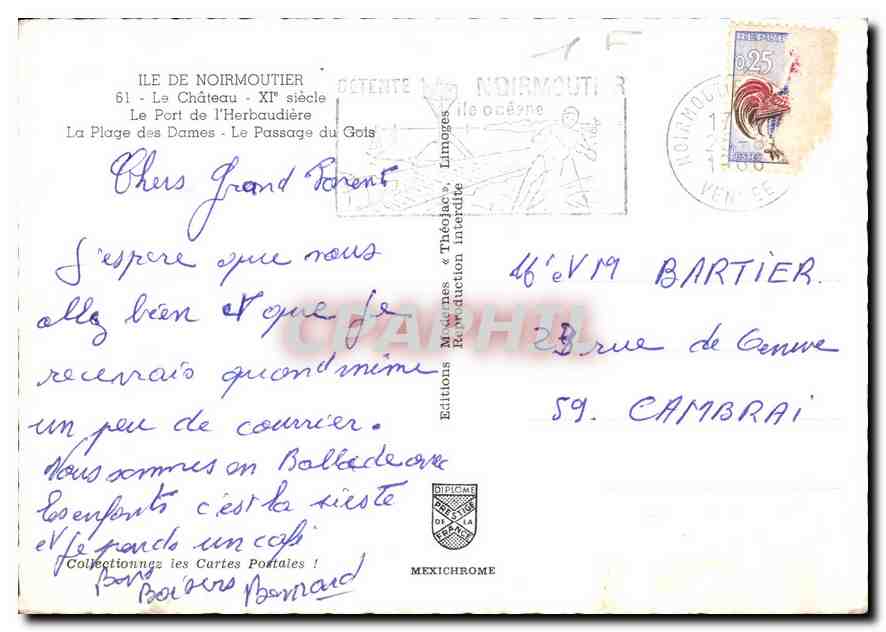 ILE DE NOIRMOUTIER
61 - Le Château - XIe siècle
Le Port de l'Herbaudière
La Plage des Dames - Le Passage du Gois
1 F
DÉTENTE NOIRMOUTIER
île océane
REPUB
0,25
NOIRMOU
17
VENDEE
Chers Grand Parent
J'espere que vous
allez bien et que je
recevrais quand même
un peu de courrier.
Nous sommes en Ballade avec
les enfants c'est la sieste
et je prends un café
Bons
Baisers Bernard
Collectionnez les Cartes Postales !
Editions Modernes « Théojac », Limoges
Reproduction interdite
Mr et Me BARTIER.
23 rue de Geneve
59. CAMBRAI
DIPLOME
PRESTIGE
DE LA
FRANCE
MEXICHROME
CPAPHIL